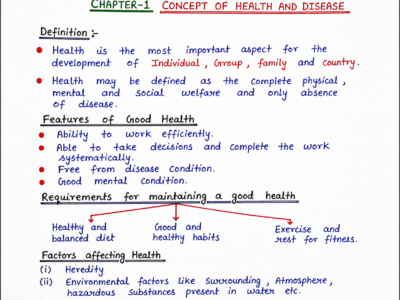 CHAPTER-1 CONCEPT OF HEALTH AND DISEASE
Definition :-
Health is the most important aspect for the
development of Individual, Group, family and country.
Health may be defined as the complete physical,
mental and social welfare and only absence
of disease.
Features of Good Health
Ability to work efficiently.
Able to take decisions and complete the work
systematically.
Free from disease condition.
Good mental condition.
Requirements for maintaining a good health
Healthy and
balanced diet
Good and
healthy habits
Exercise and
rest for fitness.
Factors affecting Health
(i) Heredity
(ii) Environmental factors like surrounding, Atmosphere,
hazardous substances present in water etc.